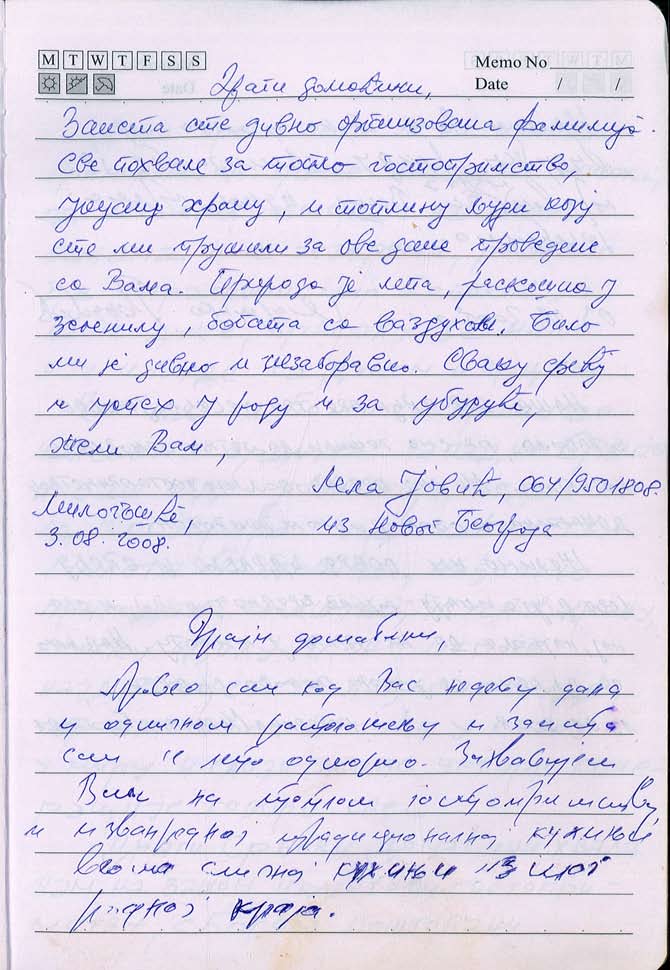 M T W T F S S
Memo No
Date / /
Драги домаћини,
Заиста сте дивно организована фамилија.
Све похвале за топло гостопримство,
храну, и топлину коју
сте ми пружили за ове дане проведене
са Вама. Природа је лепа, раскошна у
зеленилу, богата са ваздухом. Било
ми је дивно и незаборавно. Сваку срећу
и успех у раду и за убудуће,
жели Вам,
Лела Јовић 064/9501808.
из Новог Београда
3.08.2008.
Драги домаћини,
Провео сам код Вас недељу дана
у одличном расположењу и заиста
сам се лепо одморио. Захваљујем
Вам на топлом гостопримству,
и изванредној традиционалној кухињи
веома сличној кухињи из мог
родног краја.